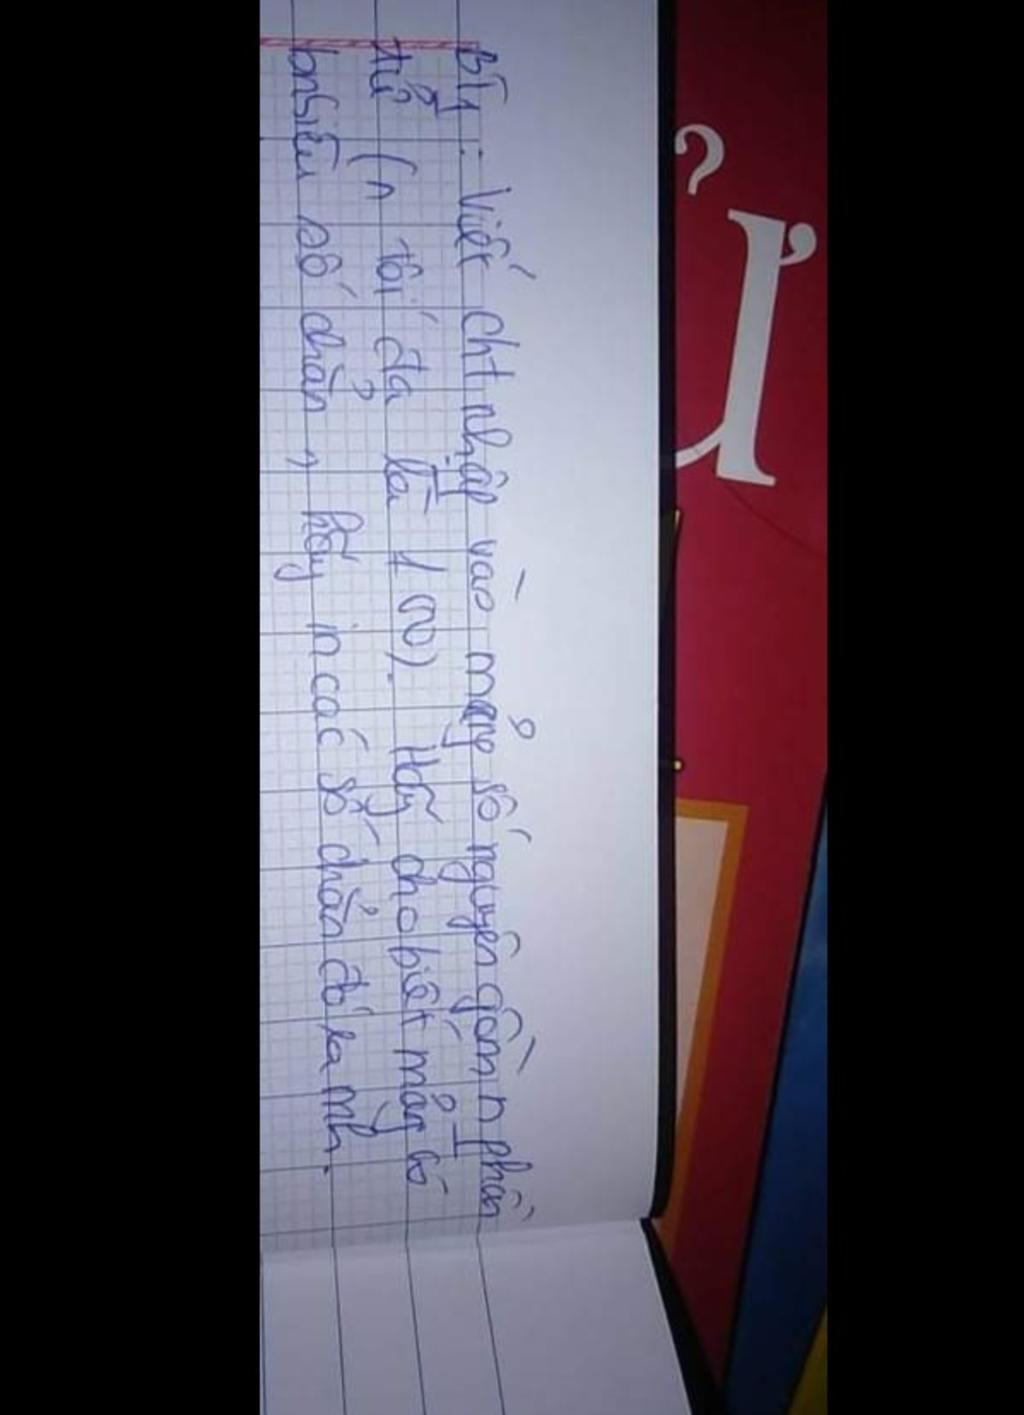 BT1: Viết cht nhập vào mảng số nguyên gồm n phần
tử (n tối đa là 100). Hãy cho biết mảng có
bnhiêu số chẵn, hãy in các số chẵn đó ra mh.
Ử